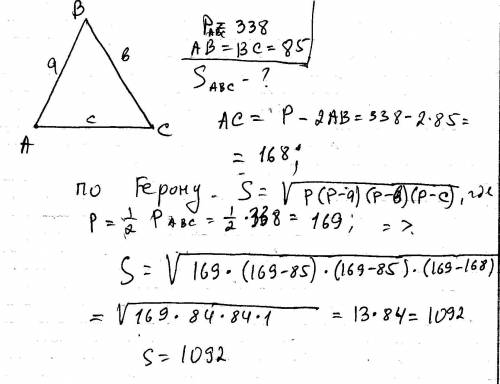 B
a
b
c
A
C
P_ABC = 338
AB = BC = 85
S_ABC - ?
AC = P - 2AB = 338 - 2·85 =
= 168;
по Герону. S = √P(P-a)(P-b)(P-c), где
P = 1/2 P_ABC = 1/2 · 338 = 169; =>
S = √169·(169-85)·(169-85)·(169-168)
= √169·84·84·1 = 13·84 = 1092
S = 1092